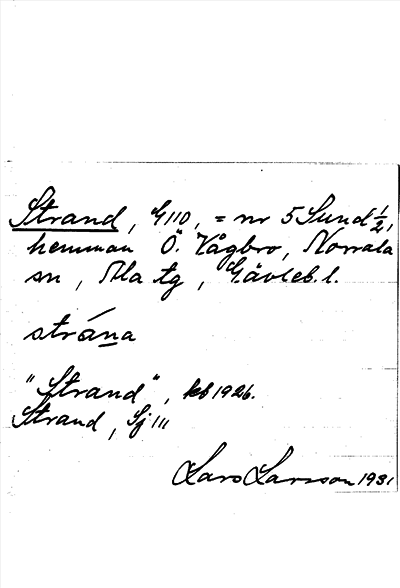 Strand, G110, = nr 5 Sund ½,
hemman Ö. Vågbro, Norrala
sn, Ala tg, Gävleb. l.
strána
"Strand", kb 1926.
Strand, Sj 111
Lars Larsson 1931